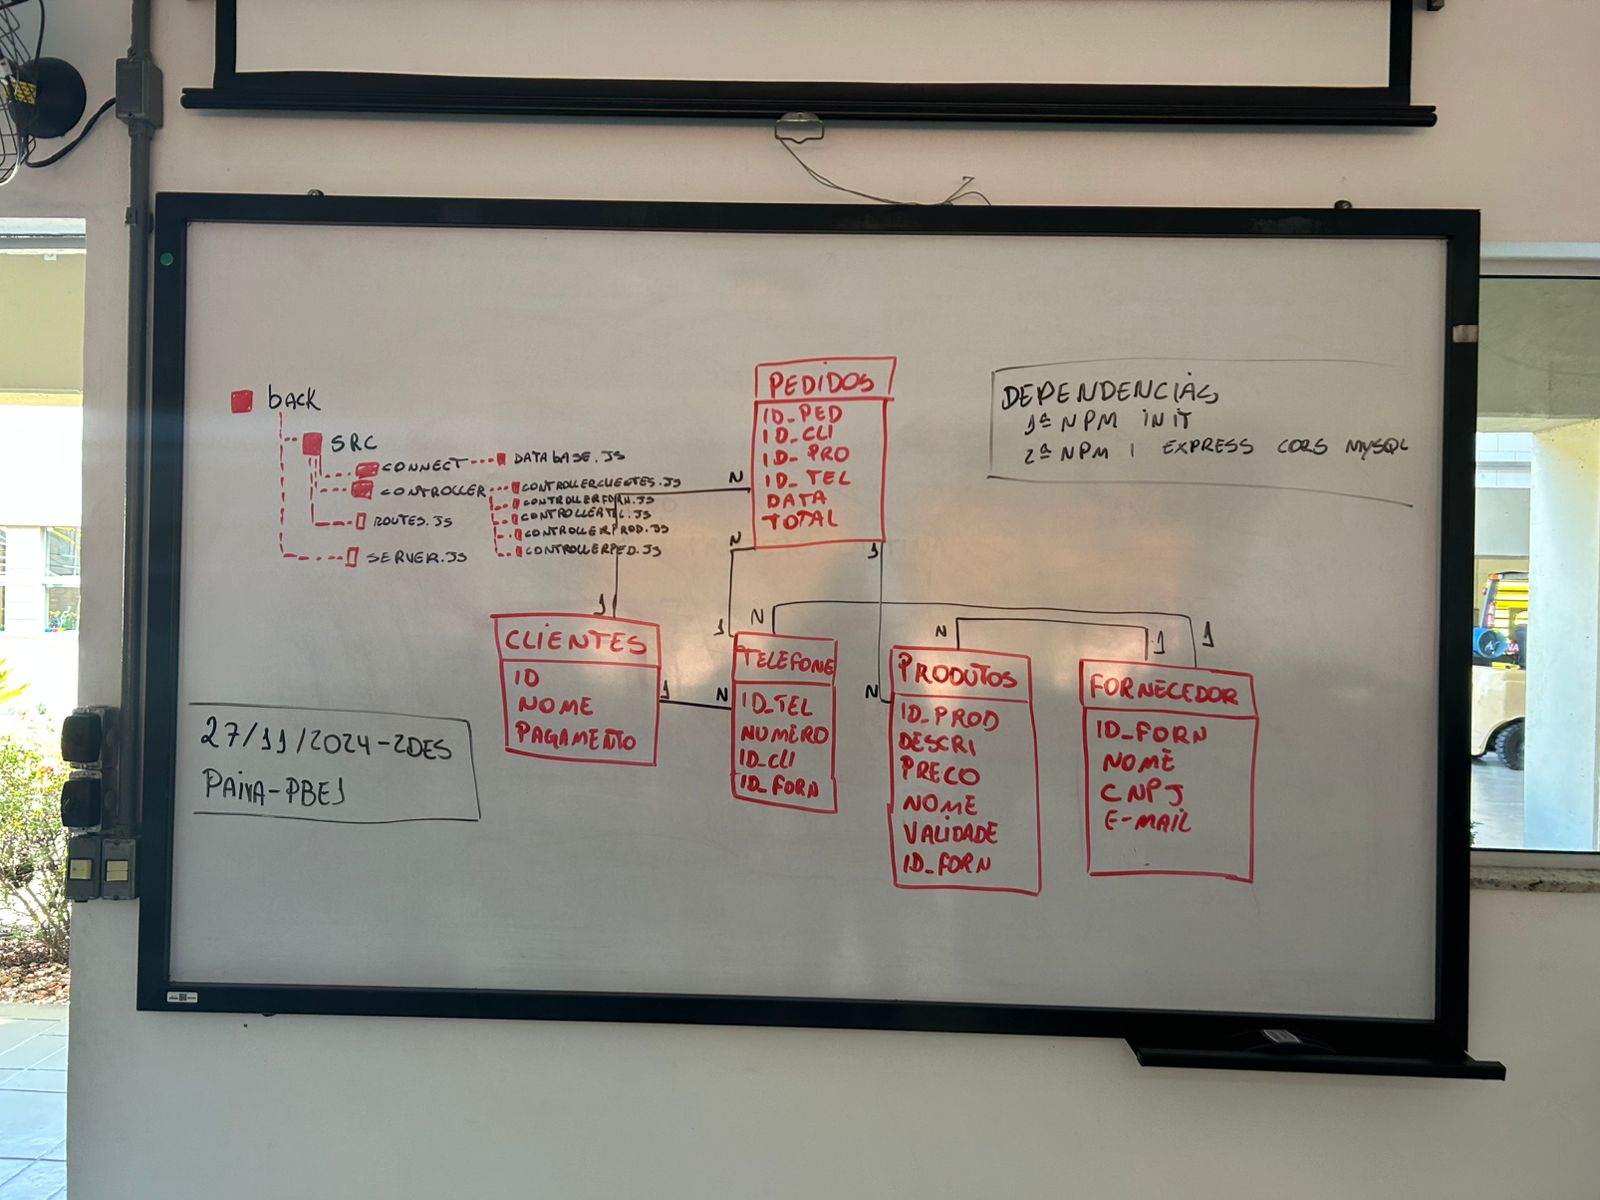 back
SRC
CONNECT
DATABASE.JS
CONTROLLER
CONTROLLERCLIENTES.JS
CONTROLLERFORN.JS
CONTROLLERTEL.JS
CONTROLLERPROD.JS
CONTROLLERPED.JS
ROUTES.JS
SERVER.JS
PEDIDOS
ID_PED
ID_CLI
ID_PRO
ID_TEL
DATA
TOTAL
DEPENDENCIAS
1ª NPM INIT
2ª NPM I EXPRESS CORS MYSQL
N
N
1
1
CLIENTES
ID
NOME
PAGAMENTO
1
N
1
N
TELEFONE
ID_TEL
NUMERO
ID_CLI
ID_FORN
N
N
PRODUTOS
ID_PROD
DESCRI
PRECO
NOME
VALIDADE
ID_FORN
1
1
FORNECEDOR
ID_FORN
NOME
CNPJ
E-MAIL
27/11/2024-2DES
PAIVA-PBE1